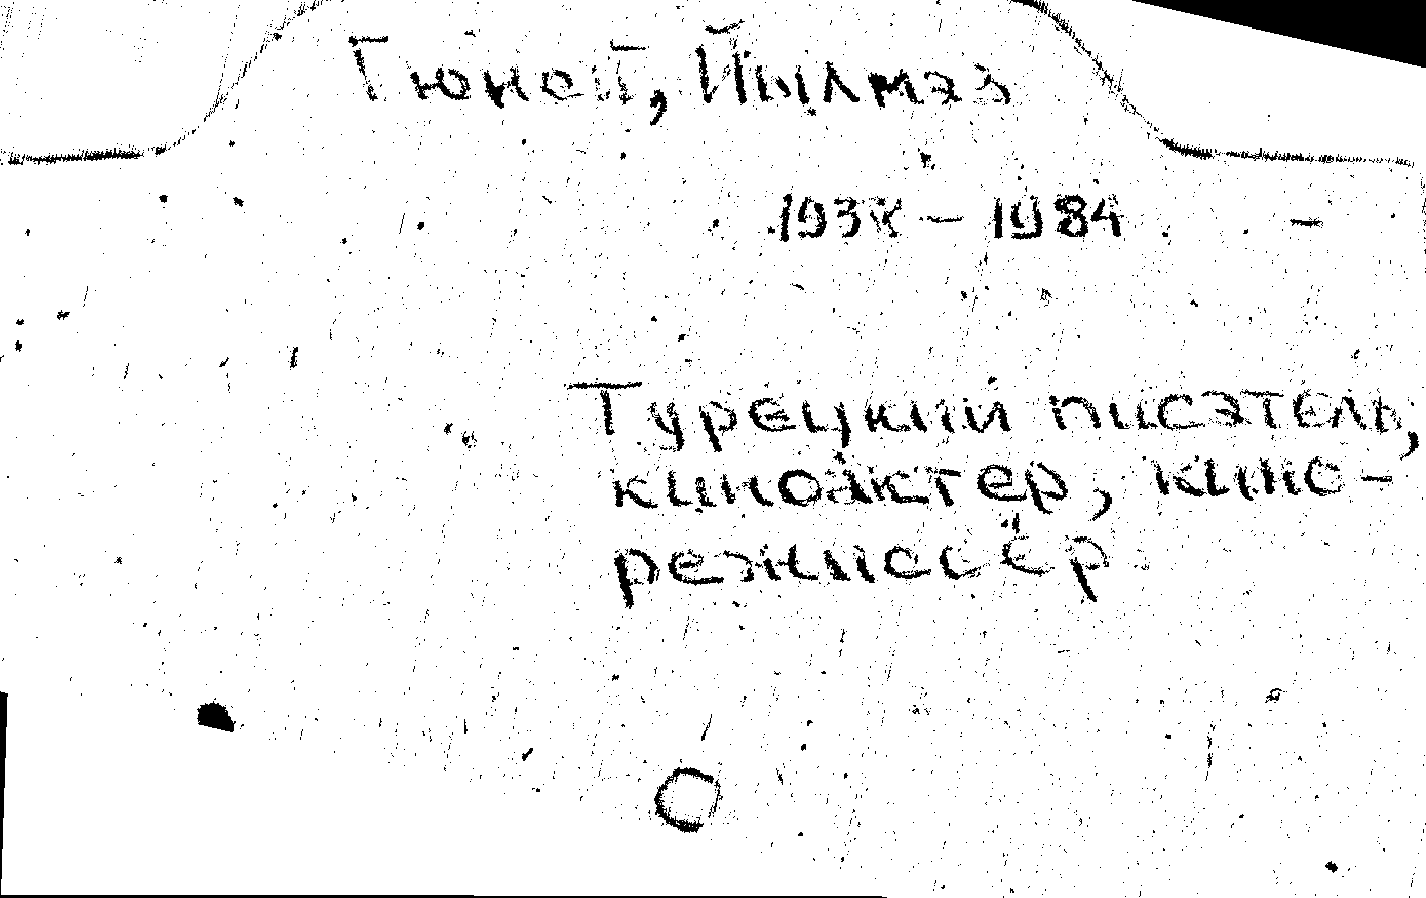 Гюней, Йылмаз
– 1984 –
Турецкий писатель,
киноактер, кино-
режиссёр